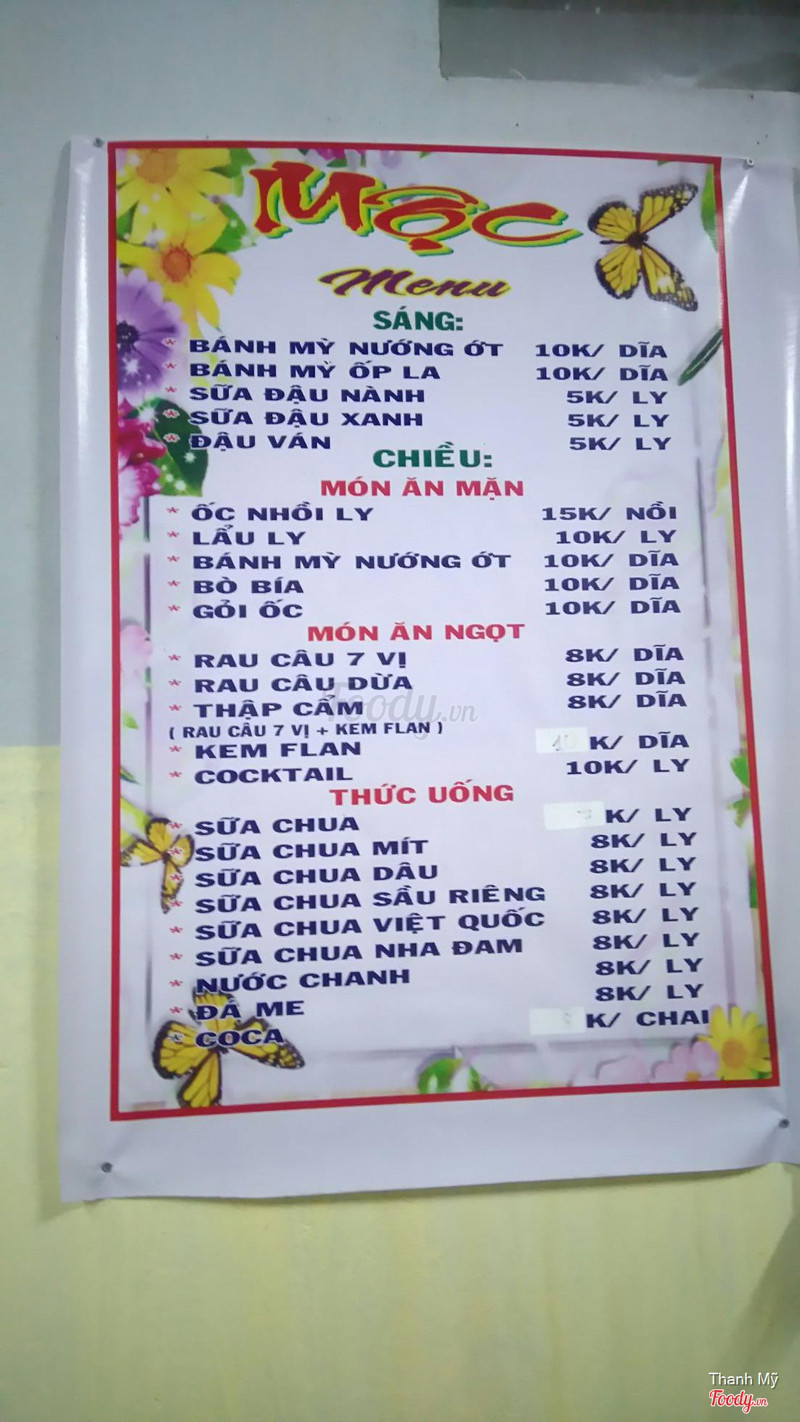 MỘC
Menu
SÁNG:
* BÁNH MỲ NƯỚNG ỚT 10K/ DĨA
* BÁNH MỲ ỐP LA 10K/ DĨA
* SỮA ĐẬU NÀNH 5K/ LY
* SỮA ĐẬU XANH 5K/ LY
* ĐẬU VÁN 5K/ LY
CHIỀU:
MÓN ĂN MẶN
* ỐC NHỒI LY 15K/ NỒI
* LẨU LY 10K/ LY
* BÁNH MỲ NƯỚNG ỚT 10K/ DĨA
* BÒ BÍA 10K/ DĨA
* GỎI ỐC 10K/ DĨA
MÓN ĂN NGỌT
* RAU CÂU 7 VỊ 8K/ DĨA
* RAU CÂU DỪA 8K/ DĨA
* THẬP CẨM 8K/ DĨA
( RAU CÂU 7 VỊ + KEM FLAN )
* KEM FLAN 10 K/ DĨA
* COCKTAIL 10K/ LY
THỨC UỐNG
* SỮA CHUA K/ LY
* SỮA CHUA MÍT 8K/ LY
* SỮA CHUA DÂU 8K/ LY
* SỮA CHUA SẦU RIÊNG 8K/ LY
* SỮA CHUA VIỆT QUỐC 8K/ LY
* SỮA CHUA NHA ĐAM 8K/ LY
* NƯỚC CHANH 8K/ LY
* ĐÁ ME 8K/ LY
* COCA K/ CHAI
Foody.vn
Thanh Mỹ
Foody.vn